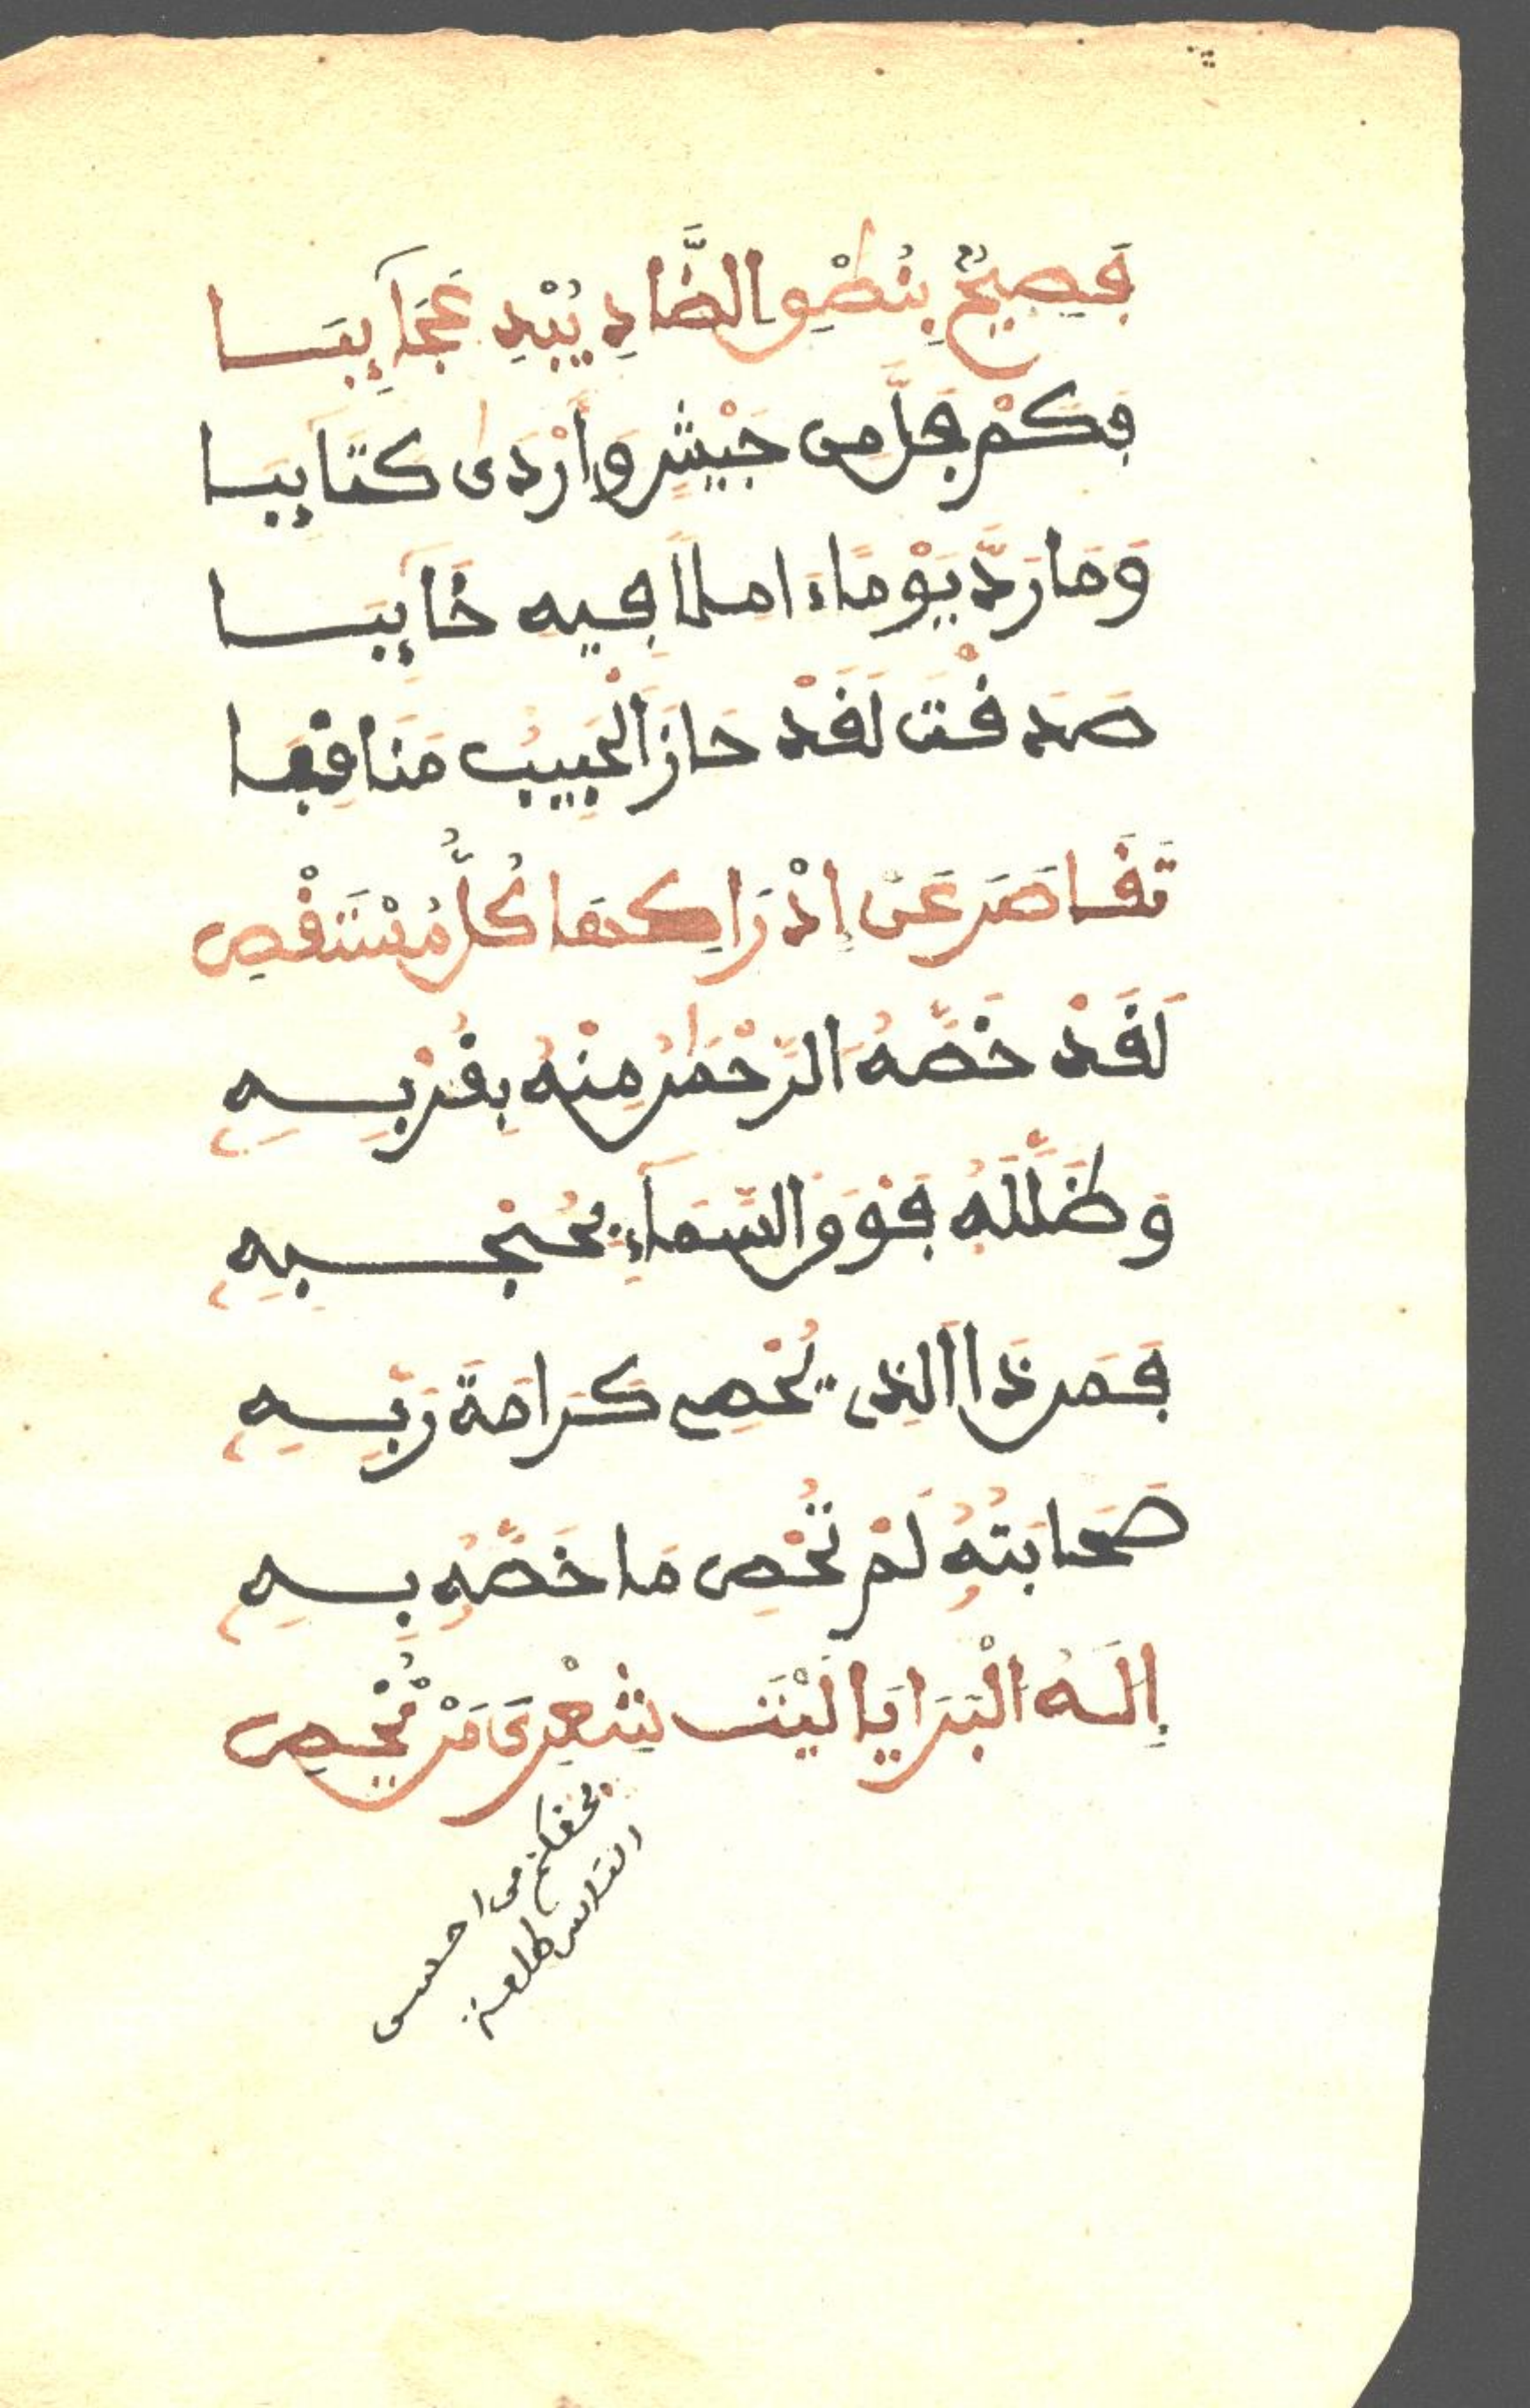 فَصِيحٌ بِنُطْقِ الضَّادِ يُبْدِ عَجَآئِبَا
فَكَمْ فَلَّ مِن جَيْشٍ وَأَرْدَىٰ كَتَائِبَا
وَمَا رَدَّ يَوْمًا ءَامِلًا فِيهِ خَائِبَا
صَدَقْتَ لَقَدْ حَازَ الْحَبِيبُ مَنَاقِبَا
تَقَاصَرَ عَنْ إِدْرَاكِهَا كُلُّ مُسْتَقْصِ
لَقَدْ خَصَّهُ الرَّحْمَٰنُ مِنْهُ بِقُرْبِهِ
وَظَلَّلَهُ فَوْقَ السَّمَآءِ بِحُجْبِهِ
فَمَن ذَا الَّذِى يُحْصِى كَرَامَةَ رَبِّهِ
صَحَابَتُهُ لَمْ تُحْصِ مَا خَصَّهُ بِهِ
إِلَهُ الْبَرَايَا لَيْتَ شِعْرِىَ مَنْ يُحْصِ
بحقكم من احسن
الناس طلعة